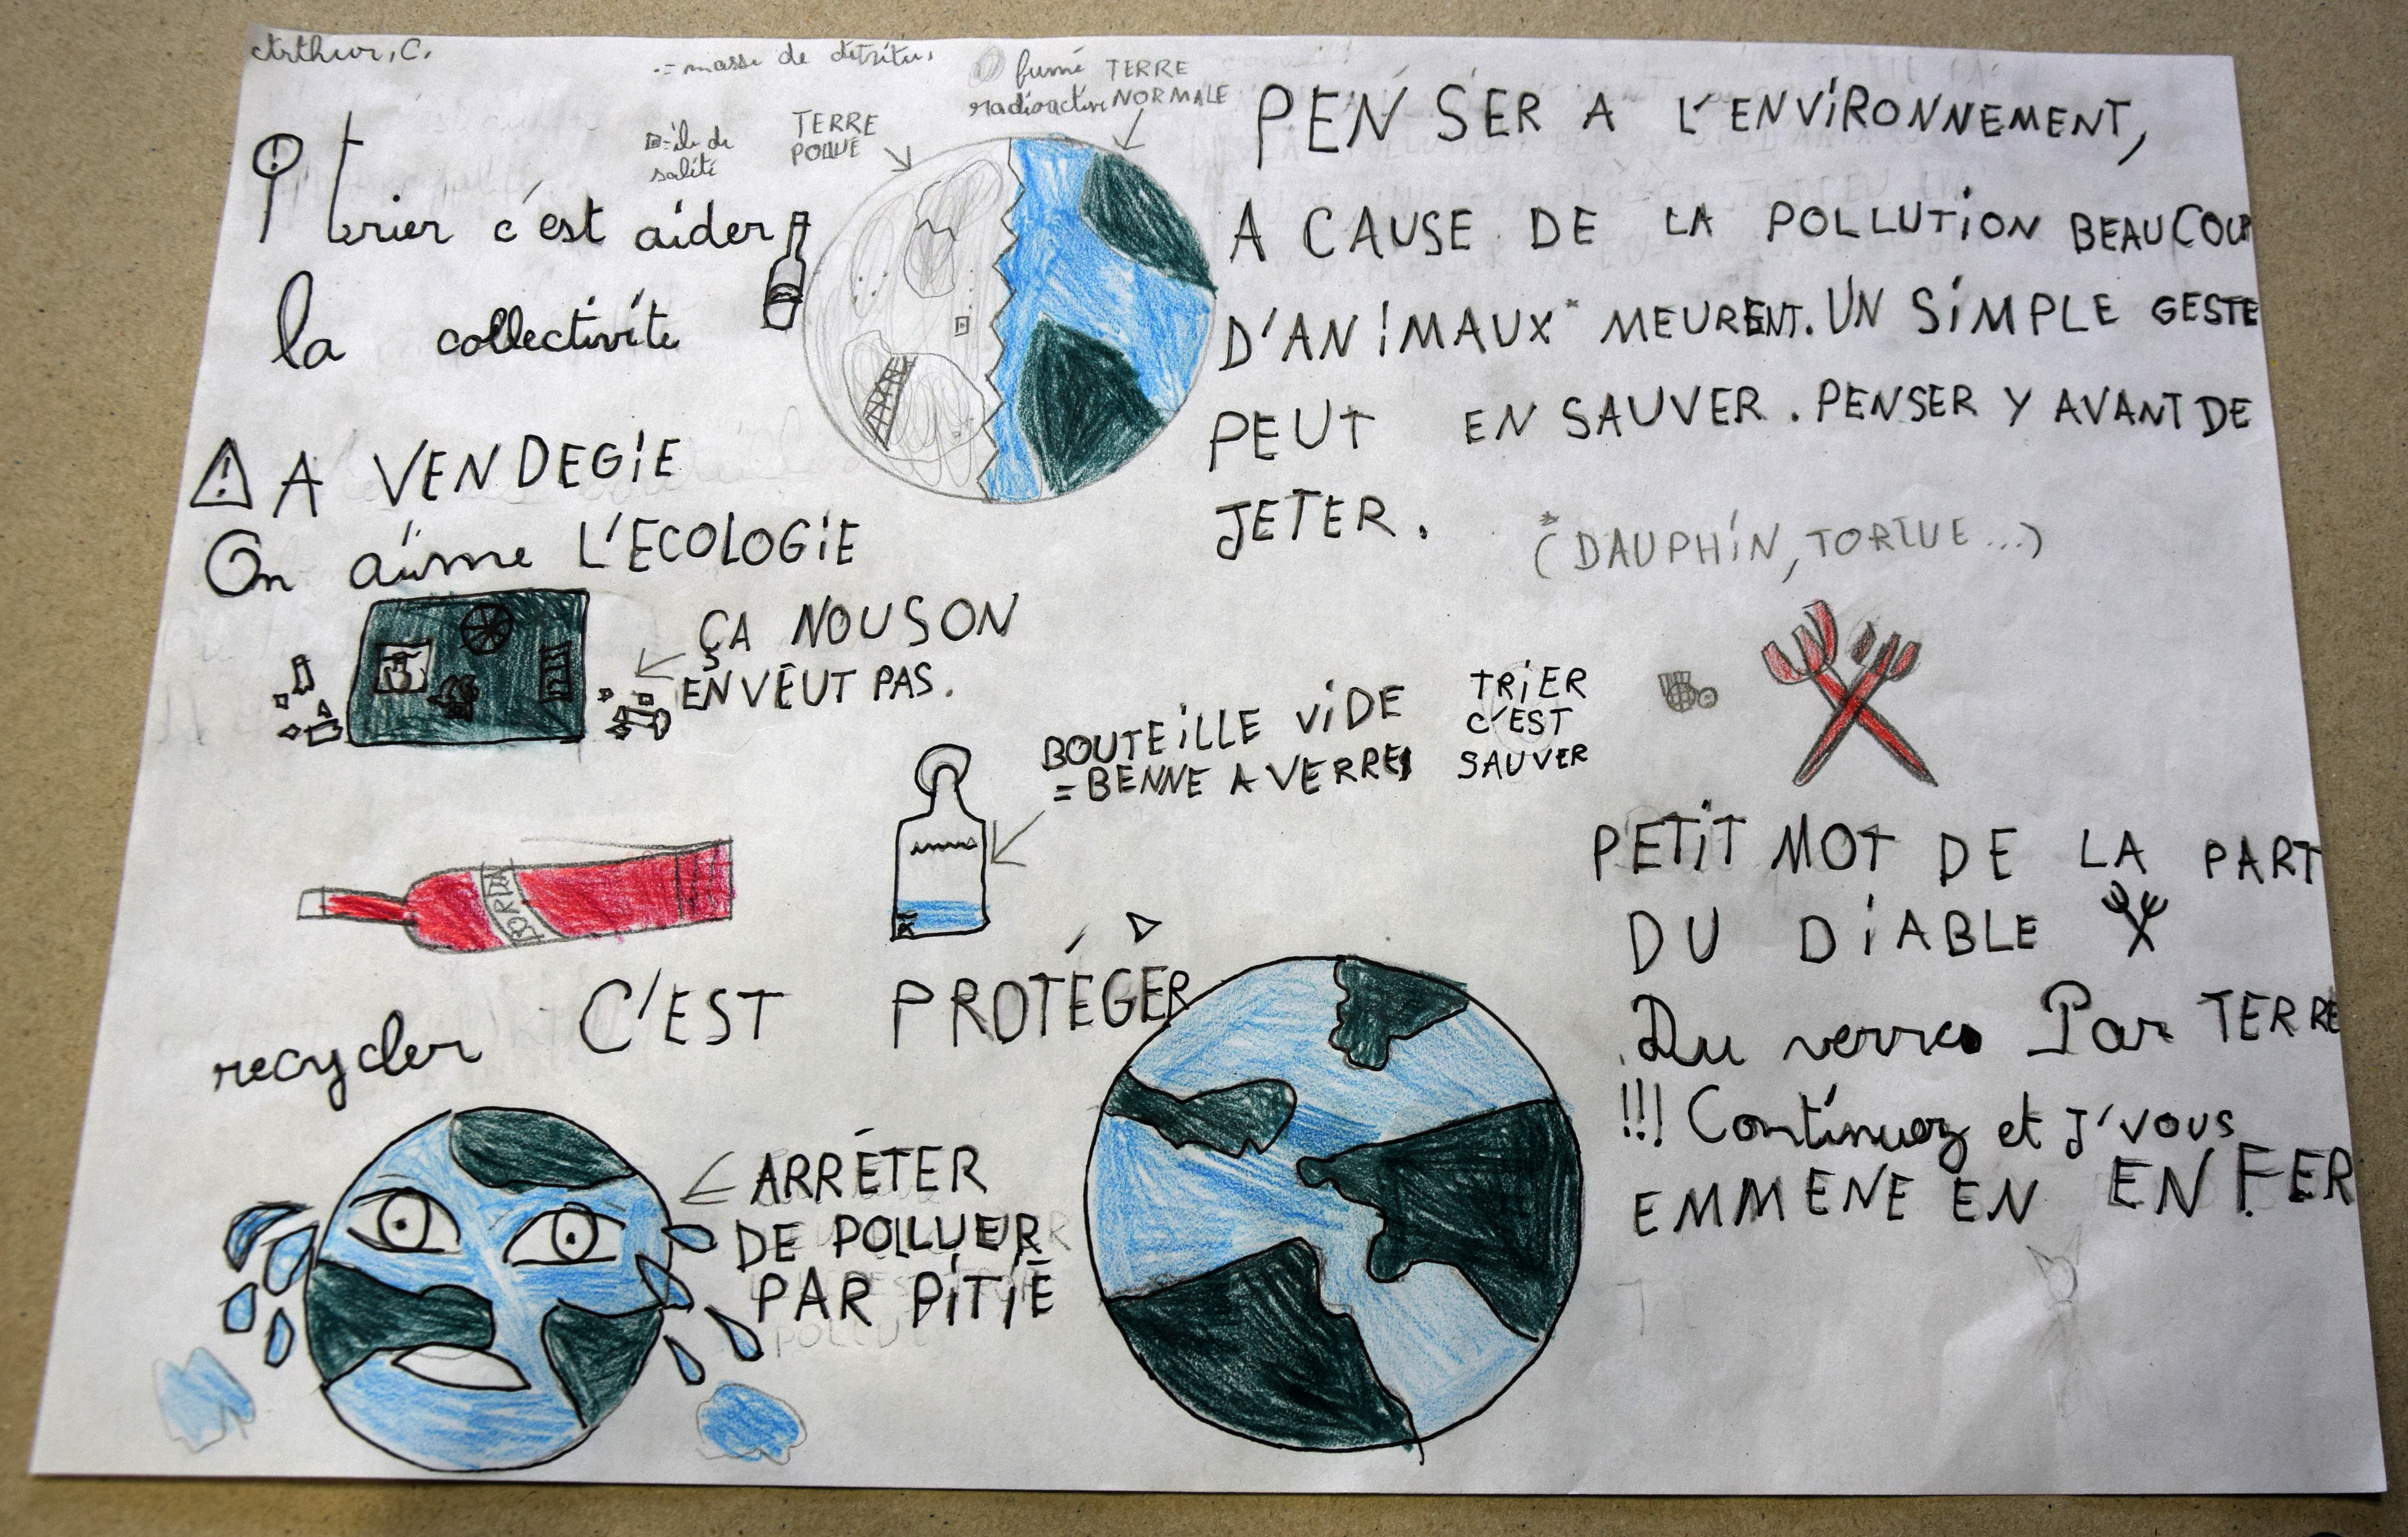 Arthur.C.
.= masse de détritus
fumé
radioactive
TERRE
NORMALE
= île de
saleté
TERRE
POLLUÉ
trier c'est aider
la collectivité
PENSER A L'ENVIRONNEMENT,
A CAUSE DE LA POLLUTION BEAUCOUP
D'ANIMAUX* MEURENT. UN SIMPLE GESTE
PEUT EN SAUVER. PENSER Y AVANT DE
JETER.
*
(DAUPHIN, TORTUE...)
A VENDEGIE
On aime L'ECOLOGIE
ÇA NOUS ON
EN VEUT PAS.
BOUTEILLE VIDE
= BENNE A VERRE
TRIER
C'EST
SAUVER
PETIT MOT DE LA PART
DU DIABLE
Du verre Par TERRE
!!! Continuez et J'VOUS
EMMENE EN ENFER
recycler C'EST PROTÉGER
ARRÊTER
DE POLLUER
PAR PITIÉ